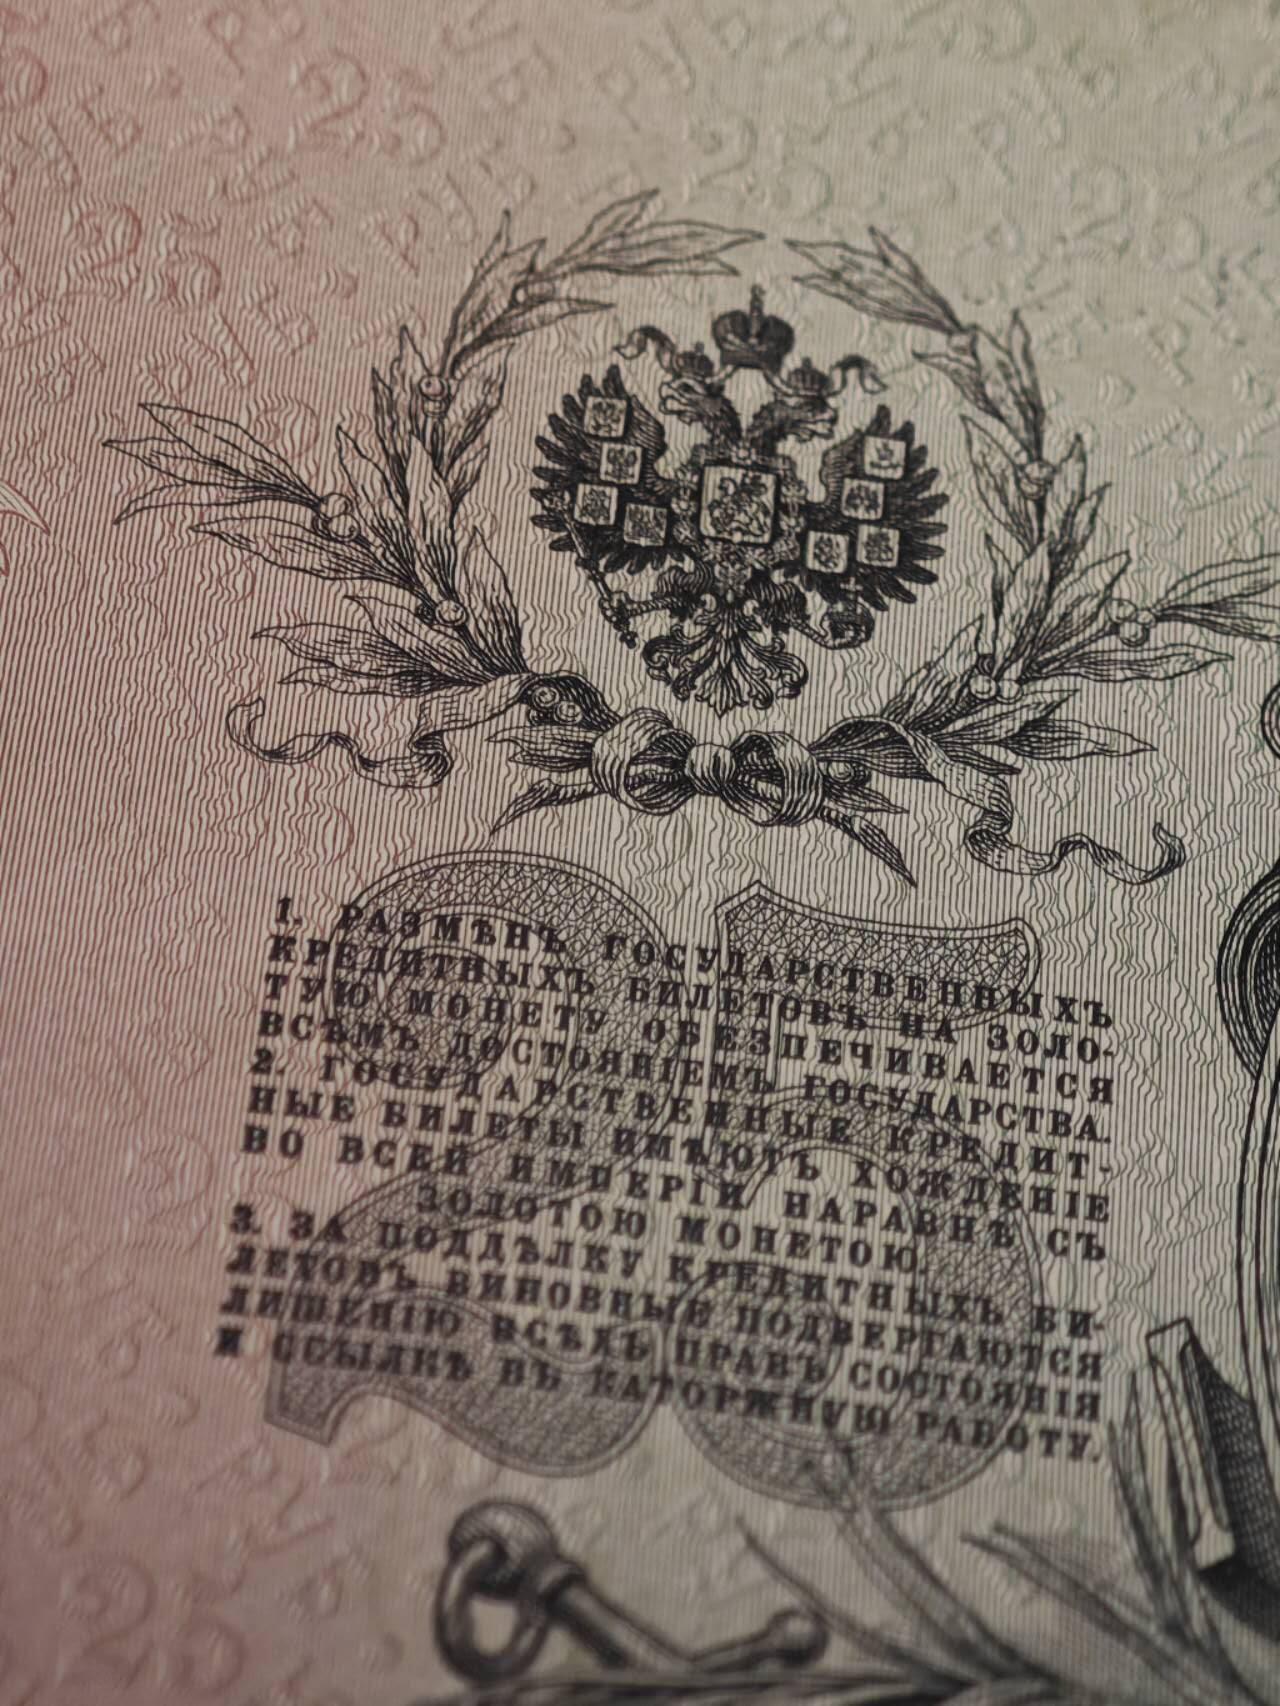 25
1. РАЗМѢНЪ ГОСУДАРСТВЕННЫХЪ
КРЕДИТНЫХЪ БИЛЕТОВЪ НА ЗОЛО-
ТУЮ МОНЕТУ ОБЕЗПЕЧИВАЕТСЯ
ВСѢМЪ ДОСТОЯНІЕМЪ ГОСУДАРСТВА.
2. ГОСУДАРСТВЕННЫЕ КРЕДИТ-
НЫЕ БИЛЕТЫ ИМѢЮТЪ ХОЖДЕНІЕ
ВО ВСЕЙ ИМПЕРІИ НАРАВНѢ СЪ
ЗОЛОТОЮ МОНЕТОЮ.
3. ЗА ПОДДѢЛКУ КРЕДИТНЫХЪ БИ-
ЛЕТОВЪ ВИНОВНЫЕ ПОДВЕРГАЮТСЯ
ЛИШЕНІЮ ВСѢХЪ ПРАВЪ СОСТОЯНІЯ
И ССЫЛКѢ ВЪ КАТОРЖНУЮ РАБОТУ.